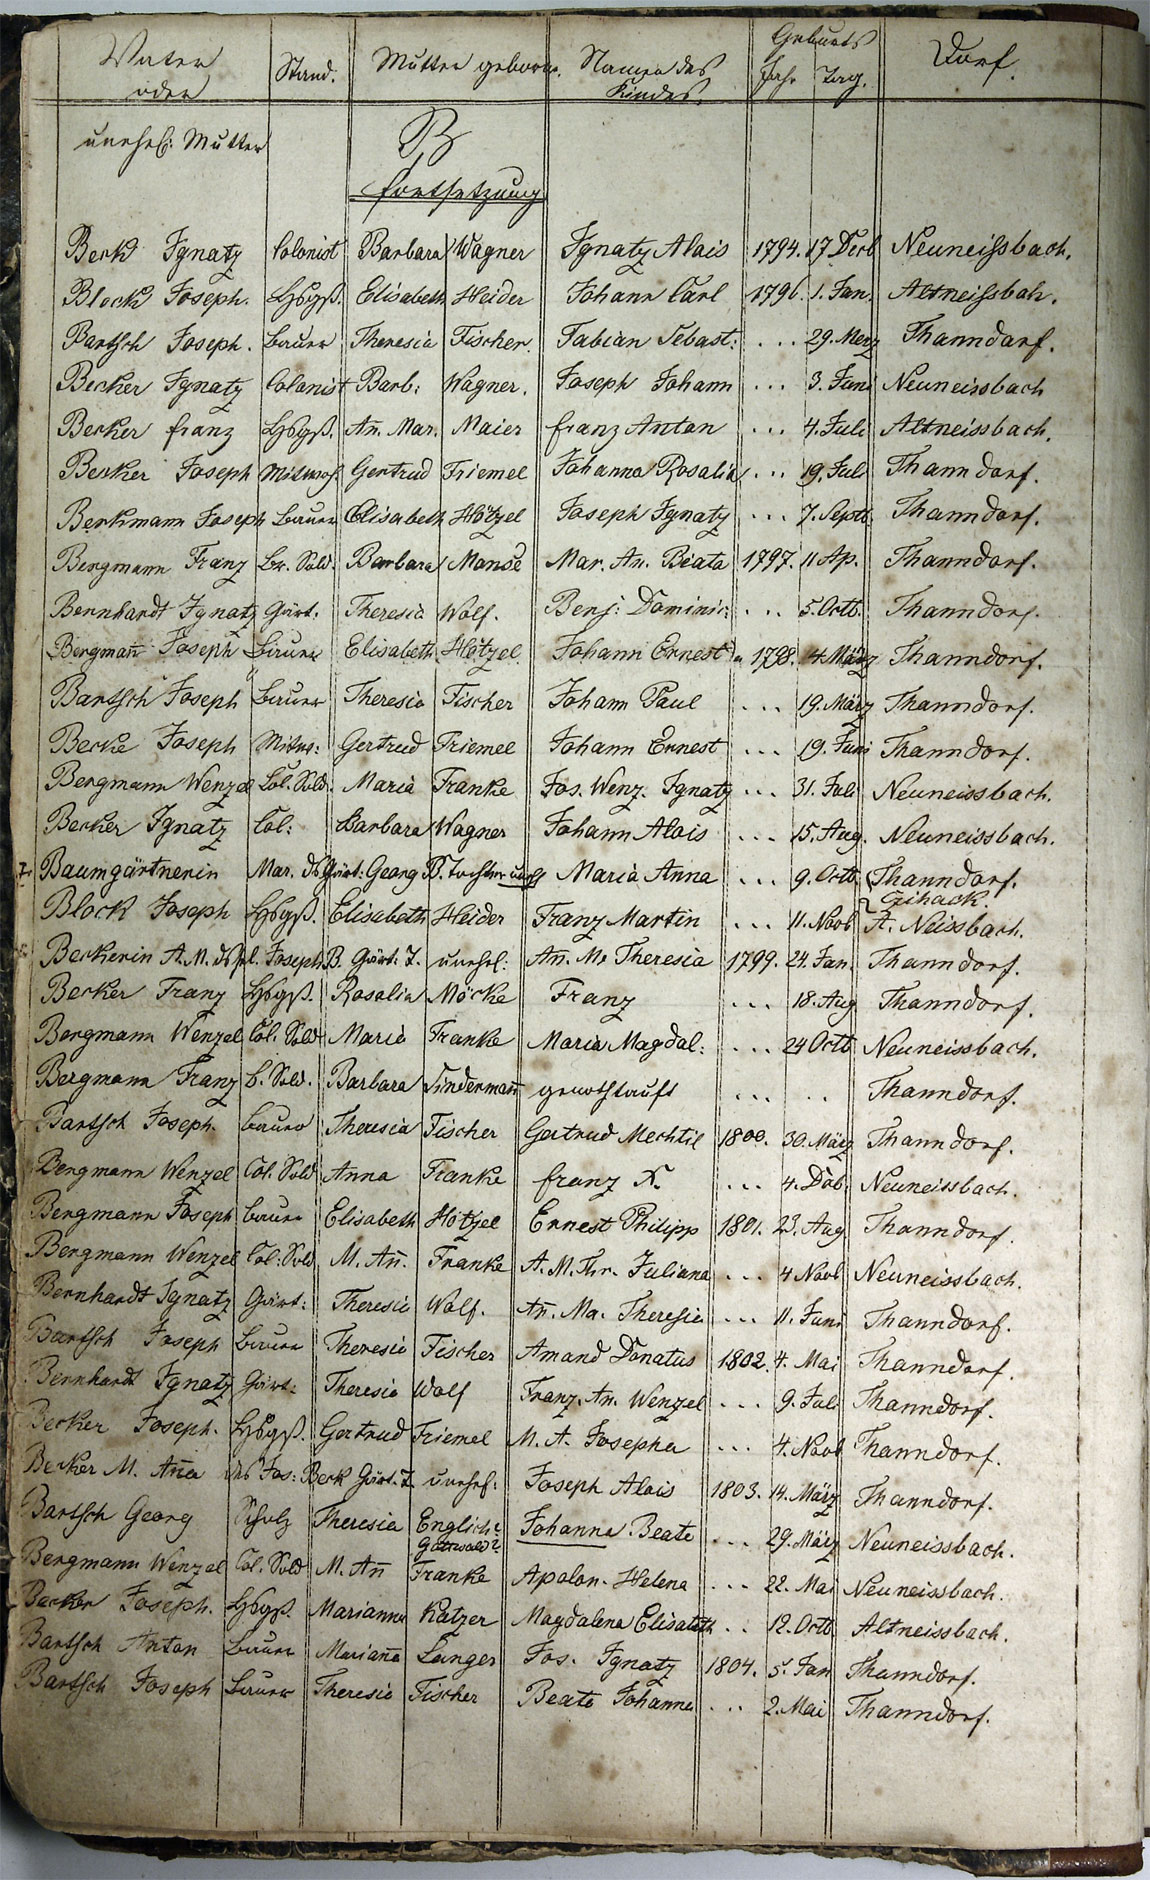 Vater oder Stand. Mutter geborne. Namen des Kindes. Geburts Jahr Tag. Dorf.
unehel: Mutter
B
Fortsetzung
Berk Ignatz Colonist Barbara Wagner Ignatz Alois 1794. 17 Decb Neuneissbach.
Block Joseph. Elisabeth Heider Johann Carl 1796. 1. Jan. Altneissbah.
Bartsch Joseph. Bauer Theresia Fischer. Fabian Sebast: ... 29. Merz Thanndorf.
Becker Ignatz Colonist Barb: Wagner. Joseph Johann ... 3. Juni Neuneissbach
Becker Franz An̄. Mar. Maier Franz Anton ... 4. Juli Altneissbach.
Becker Joseph Gertrud Friemel Johanna Rosalia ... 19. Juli Thanndorf.
Berkmann Joseph Bauer Elisabeth Hötzel Joseph Ignatz ... 7. Septb. Thanndorf.
Bergmann Franz Br. Sold. Barbara Monse Mar. An. Beata 1797. 11 Ap. Thanndorf.
Bernhardt Ignatz Gärt: Theresia Wolf. Benj: Dominic: ... 5. Octb. Thanndorf.
Bergman̄ Joseph Bauer Elisabeth Hötzel Johann Ernest 1798. 4. März Thanndorf.
Bartsch Joseph Bauer Theresia Fischer Johann Paul ... 19. März Thanndorf.
Becke Joseph Gertrud Friemel Johann Ernest ... 19. Juni Thanndorf.
Bergmann Wenzel Col. Sold. Maria Franke Jos. Wenz. Ignatz ... 31. Juli Neuneissbach.
Becker Ignatz Col: Barbara Wagner Johann Alois ... 15. Aug. Neuneissbach.
Baumgärtnerin Mar. ds Gärt: Georg B. Tochter unehl Maria Anna ... 9. Octb. Thanndorf.
Block Joseph Elisabeth Heider Franz Martin ... 11. Novb A. Neissbach.
Beckerin A. M. Joseph B. Gärt: T. unehel: An̄. Ma Theresia 1799. 24. Jan. Thanndorf.
Becker Franz Rosalia Möcke Franz ... 18. Aug Thanndorf.
Bergmann Wenzel Col. Sold Maria Franke Maria Magdal: ... 24 Octb Neuneissbach.
Bergmann Franz B. Sold. Barbara Lindermān genothtauft ... .. Thanndorf.
Bartsch Joseph. Bauer Theresia Fischer Gertrud Mechtil 1800. 30. März Thanndorf.
Bergmann Wenzel Col. Sold Anna Franke Franz X. ... 4. Dcb. Neuneissbach.
Bergmann Joseph Bauer Elisabeth Hötzel Ernest Philipp 1801. 23. Aug Thanndorf.
Bergmann Wenzel Col: Sold M. An̄. Franke A. M. Thr. Juliana ... 4 Novb Neuneissbach.
Bernhardt Ignatz Gärt: Theresia Wolf. An̄. Ma. Theresia ... 11. Juni Thanndorf.
Bartsch Joseph Bauer Theresia Fischer Amand Donatus 1802. 4. Mai Thanndorf.
Bernhardt Ignatz Gärt: Theresia Wolf Franz. An. Wenzel ... 9. Juli Thanndorf.
Becker Joseph. Gertrud Friemel M. A. Josepha ... 4. Novb Thanndorf.
Becker M. An̄a des Jos: Beck Gärt. T. unehel: Joseph Alois 1803. 14. März Thanndorf.
Bartsch Georg Scholz Theresia Englisch? Gottwald? Johanna Beate ... 29. März Neuneissbach.
Bergmann Wenzel Col. Sold M. An̄ Franke Apolon. Helena ... 22. Mai Neuneissbach.
Becker Joseph. Marianna Katzer Magdalena Elisabeth .. 12. Octb Altneissbach.
Bartsch Anton Bauer Marian̄a Langer Jos. Ignatz 1804. 5. Jan Thanndorf.
Bartsch Joseph Bauer Theresia Fischer Beate Johanna ... 2. Mai Thanndorf.